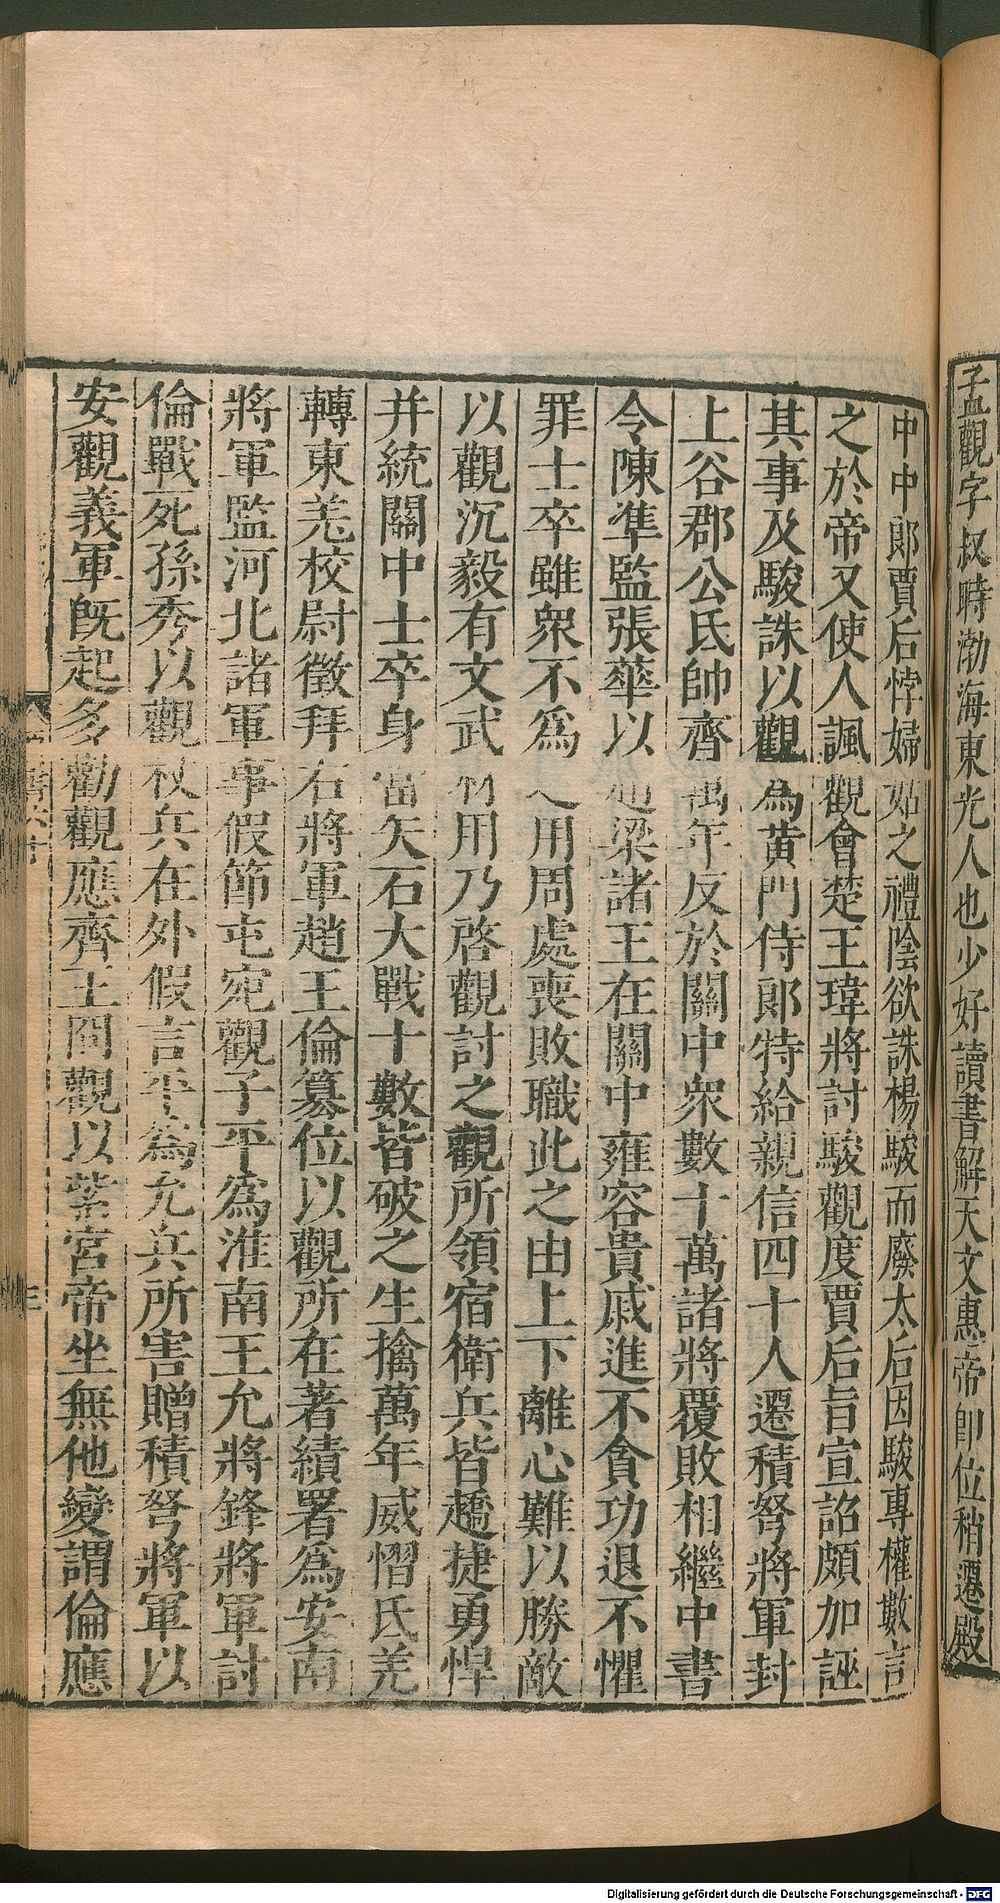 孟觀字叔時渤海東光人也少好讀書解天文惠帝即位稍遷殿
中中郎賈后悖婦姑之禮陰欲誅楊駿而廢太后因駿專權數言
之於帝又使人諷觀會楚王瑋將討駿觀度賈后旨宣詔頗加誣
其事及駿誅以觀為黃門侍郎特給親信四十人遷積弩將軍封
上谷郡公氐帥齊萬年反於關中衆數十萬諸將覆敗相繼中書
令陳準監張華以趙梁諸王在關中雍容貴戚進不貪功退不懼
罪士卒雖衆不爲之用周處喪敗職此之由上下離心難以勝敵
以觀沉毅有文武材用乃啓觀討之觀所領宿衛兵皆趫捷勇悍
并統關中士卒身當矢石大戰十數皆破之生擒萬年威慴氐羌
轉東羌校尉徵拜右將軍趙王倫篡位以觀所在著績署爲安南
將軍監河北諸軍事假節屯宛觀子平爲淮南王允將鋒將軍討
倫戰死孫秀以觀杖兵在外假言平爲允兵所害贈積弩將軍以
安觀義軍既起多勸觀應齊王冏觀以紫宮帝坐無他變謂倫應
Digitalisierung gefördert durch die Deutsche Forschungsgemeinschaft - DFG